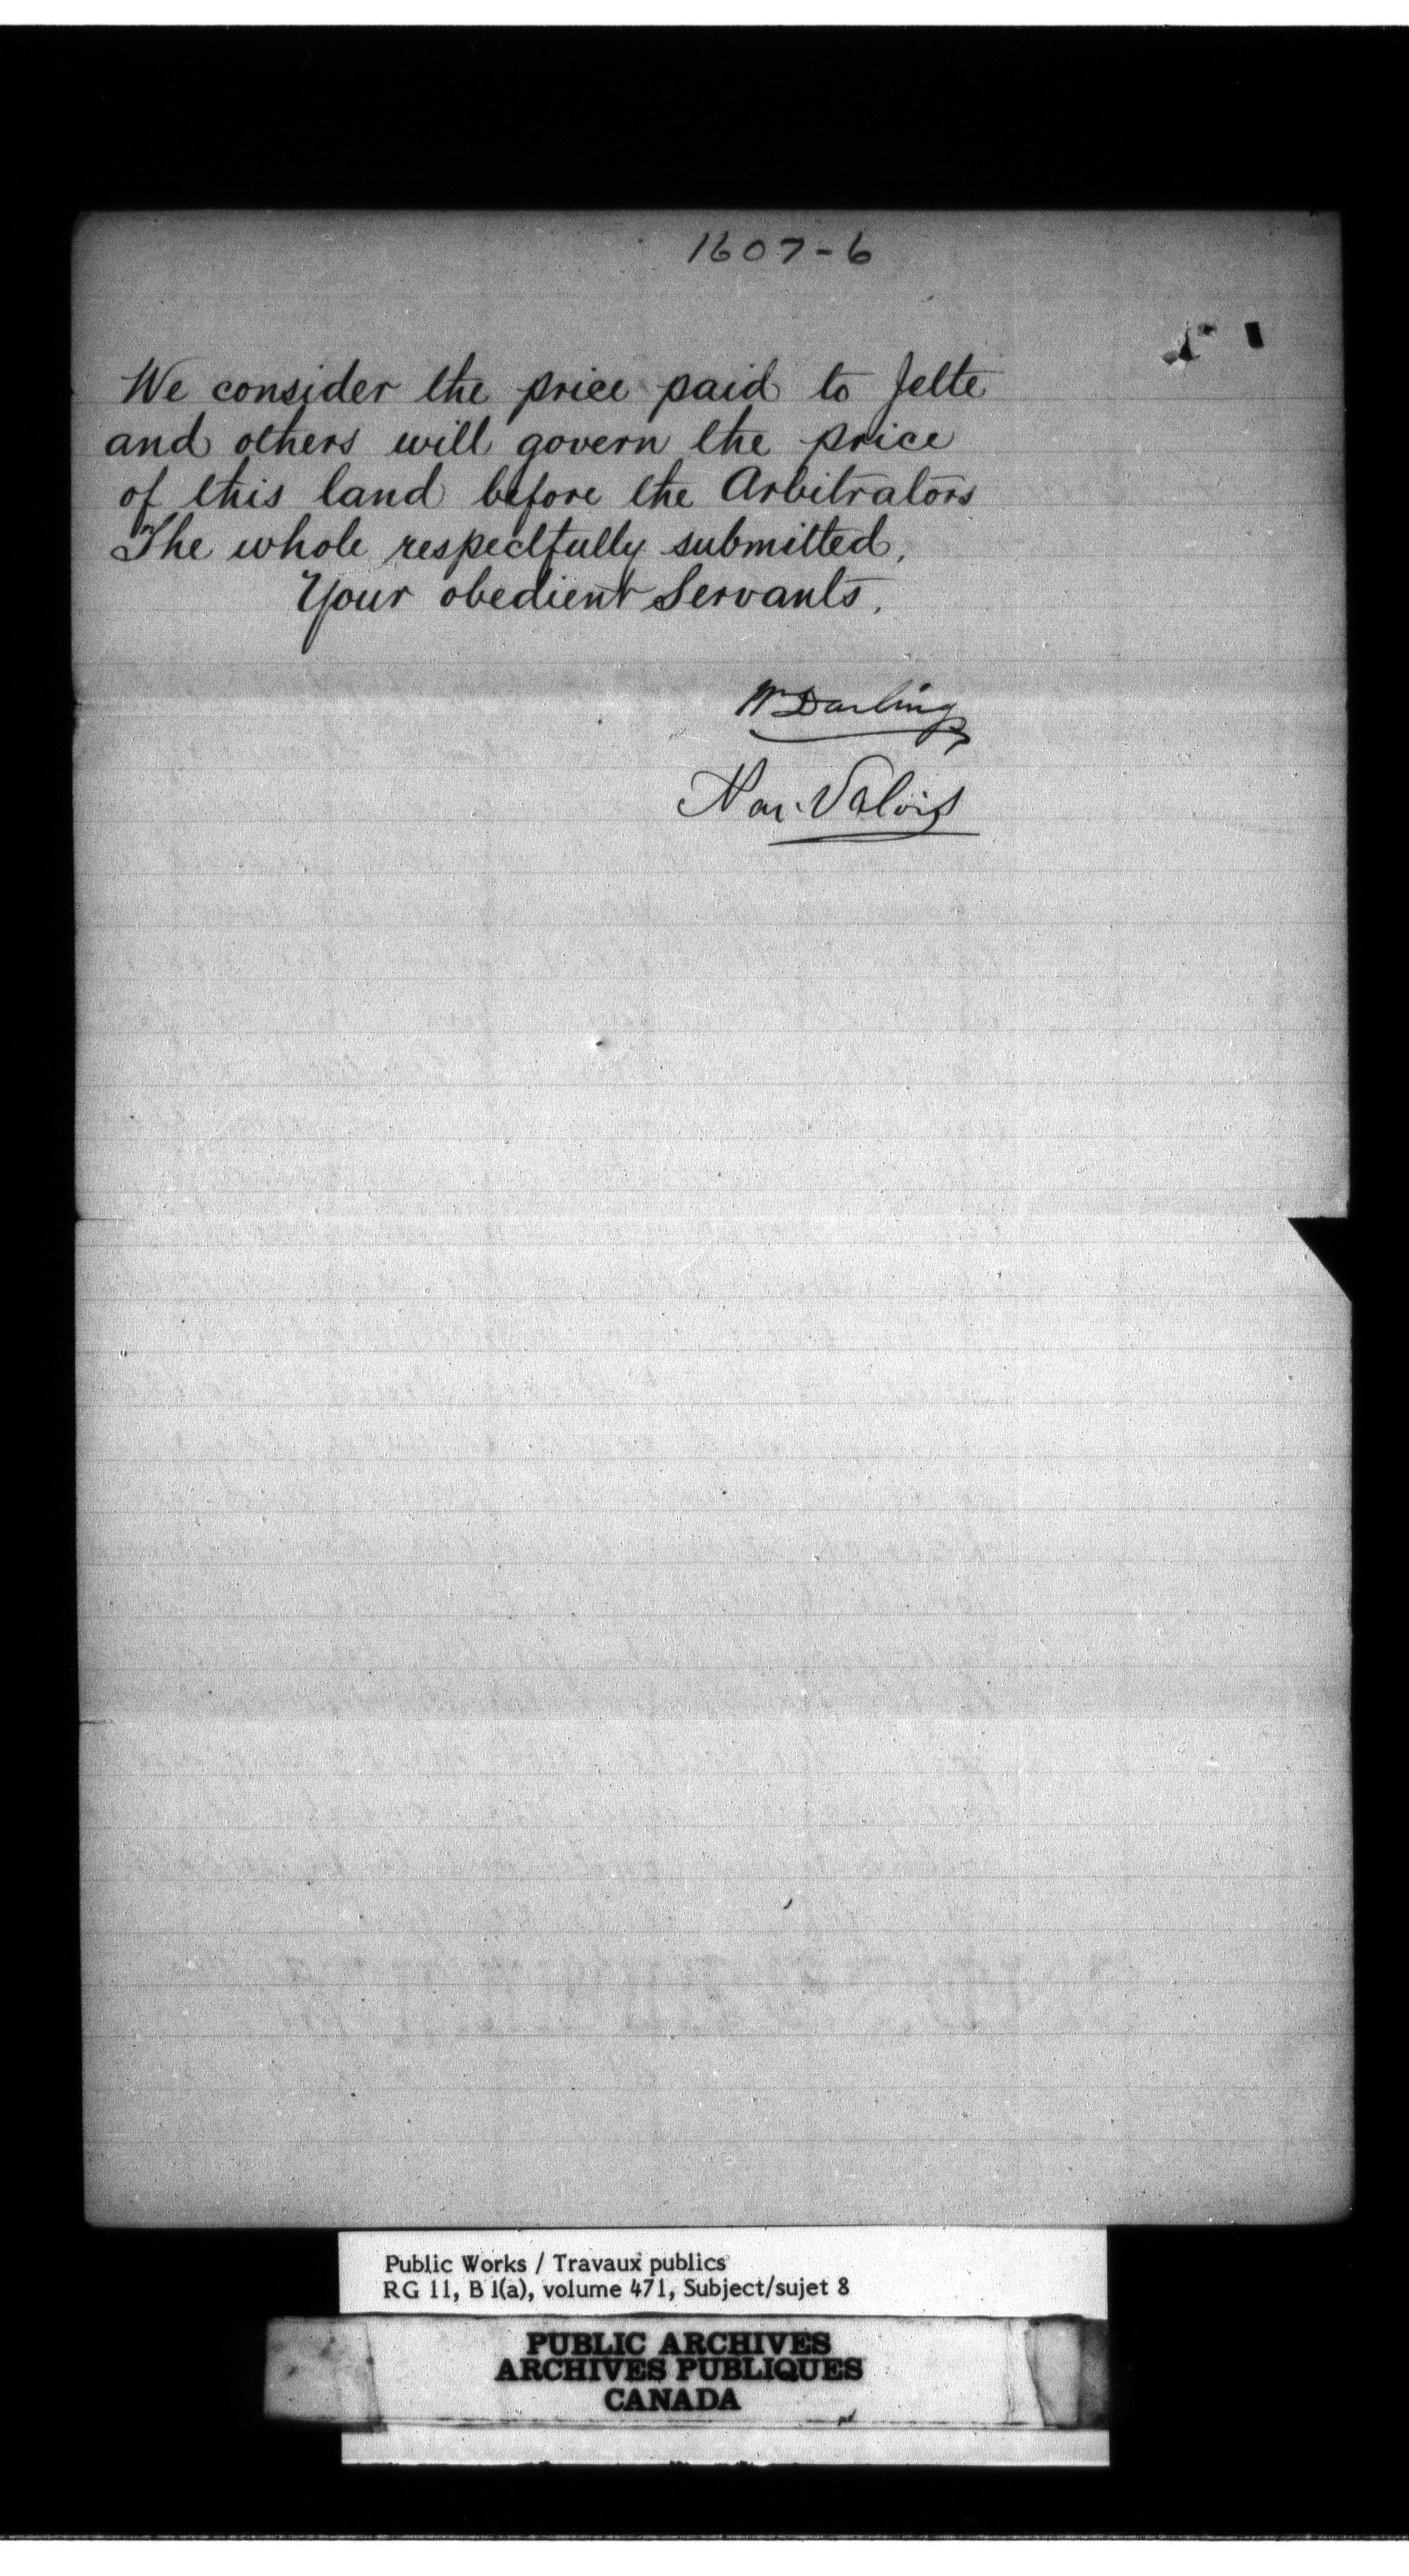 1607-6
We consider the price paid to Jette
and others will govern the price
of this land before the Arbitrators
The whole respectfully submitted.
Your obedient Servants.
Wm Darling
Nar. Valois
Public Works / Travaux publics
RG 11, B 1(a), volume 471, Subject/sujet 8
PUBLIC ARCHIVES
ARCHIVES PUBLIQUES
CANADA